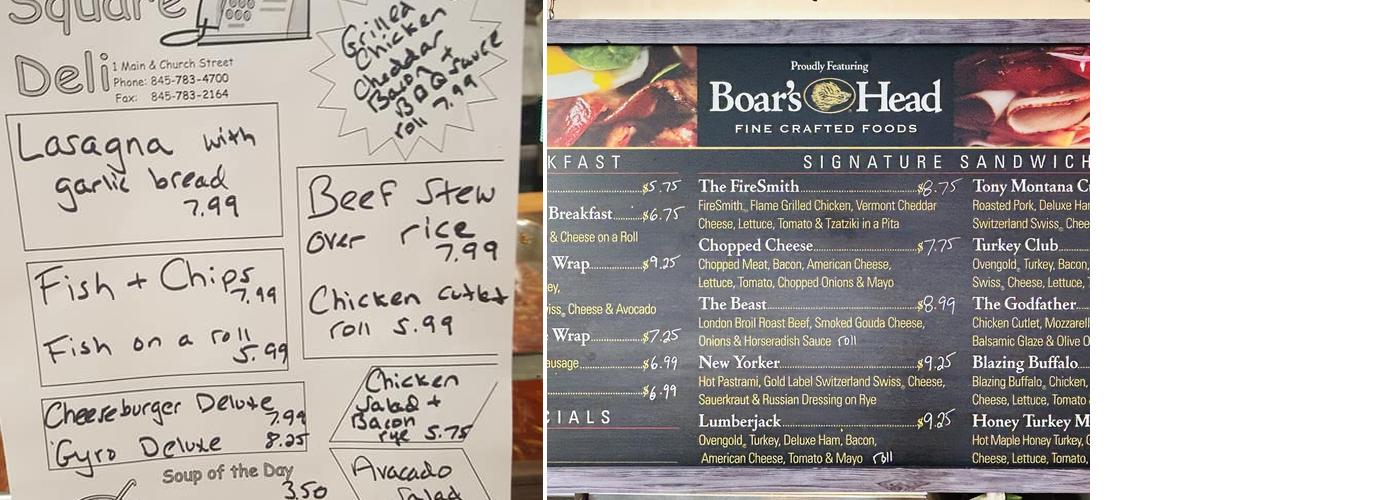 Square
Deli
1 Main & Church Street
Phone: 845-783-4700
Fax: 845-783-2164
Grilled
Chicken
Cheddar
Bacon +
BBQ sauce
roll 7.99
Lasagna with
garlic bread
7.99
Beef Stew
over rice
7.99
Chicken cutlet
roll 5.99
Fish + Chips
7.99
Fish on a roll
5.99
Cheeseburger Deluxe
7.99
Gyro Deluxe 8.25
Chicken
Salad +
Bacon
rye 5.75
Soup of the Day
3.50
Avacado
Salad
Proudly Featuring
Boar's Head
FINE CRAFTED FOODS
KFAST
$5.75
Breakfast $6.75
& Cheese on a Roll
Wrap $9.25
ey,
iss® Cheese & Avocado
Wrap $7.25
ausage $6.99
$6.99
CIALS
SIGNATURE SANDWICH
The FireSmith $8.75
FireSmith® Flame Grilled Chicken, Vermont Cheddar
Cheese, Lettuce, Tomato & Tzatziki in a Pita
Chopped Cheese $7.75
Chopped Meat, Bacon, American Cheese,
Lettuce, Tomato, Chopped Onions & Mayo
The Beast $8.99
London Broil Roast Beef, Smoked Gouda Cheese,
Onions & Horseradish Sauce roll
New Yorker $9.25
Hot Pastrami, Gold Label Switzerland Swiss® Cheese,
Sauerkraut & Russian Dressing on Rye
Lumberjack $9.25
Ovengold® Turkey, Deluxe Ham, Bacon,
American Cheese, Tomato & Mayo roll
Tony Montana C
Roasted Pork, Deluxe Ha
Switzerland Swiss® Chee
Turkey Club
Ovengold® Turkey, Bacon,
Swiss® Cheese, Lettuce,
The Godfather
Chicken Cutlet, Mozzarell
Balsamic Glaze & Olive O
Blazing Buffalo
Blazing Buffalo® Chicken,
Cheese, Lettuce, Tomato
Honey Turkey M
Hot Maple Honey Turkey,
Cheese, Lettuce, Tomato,